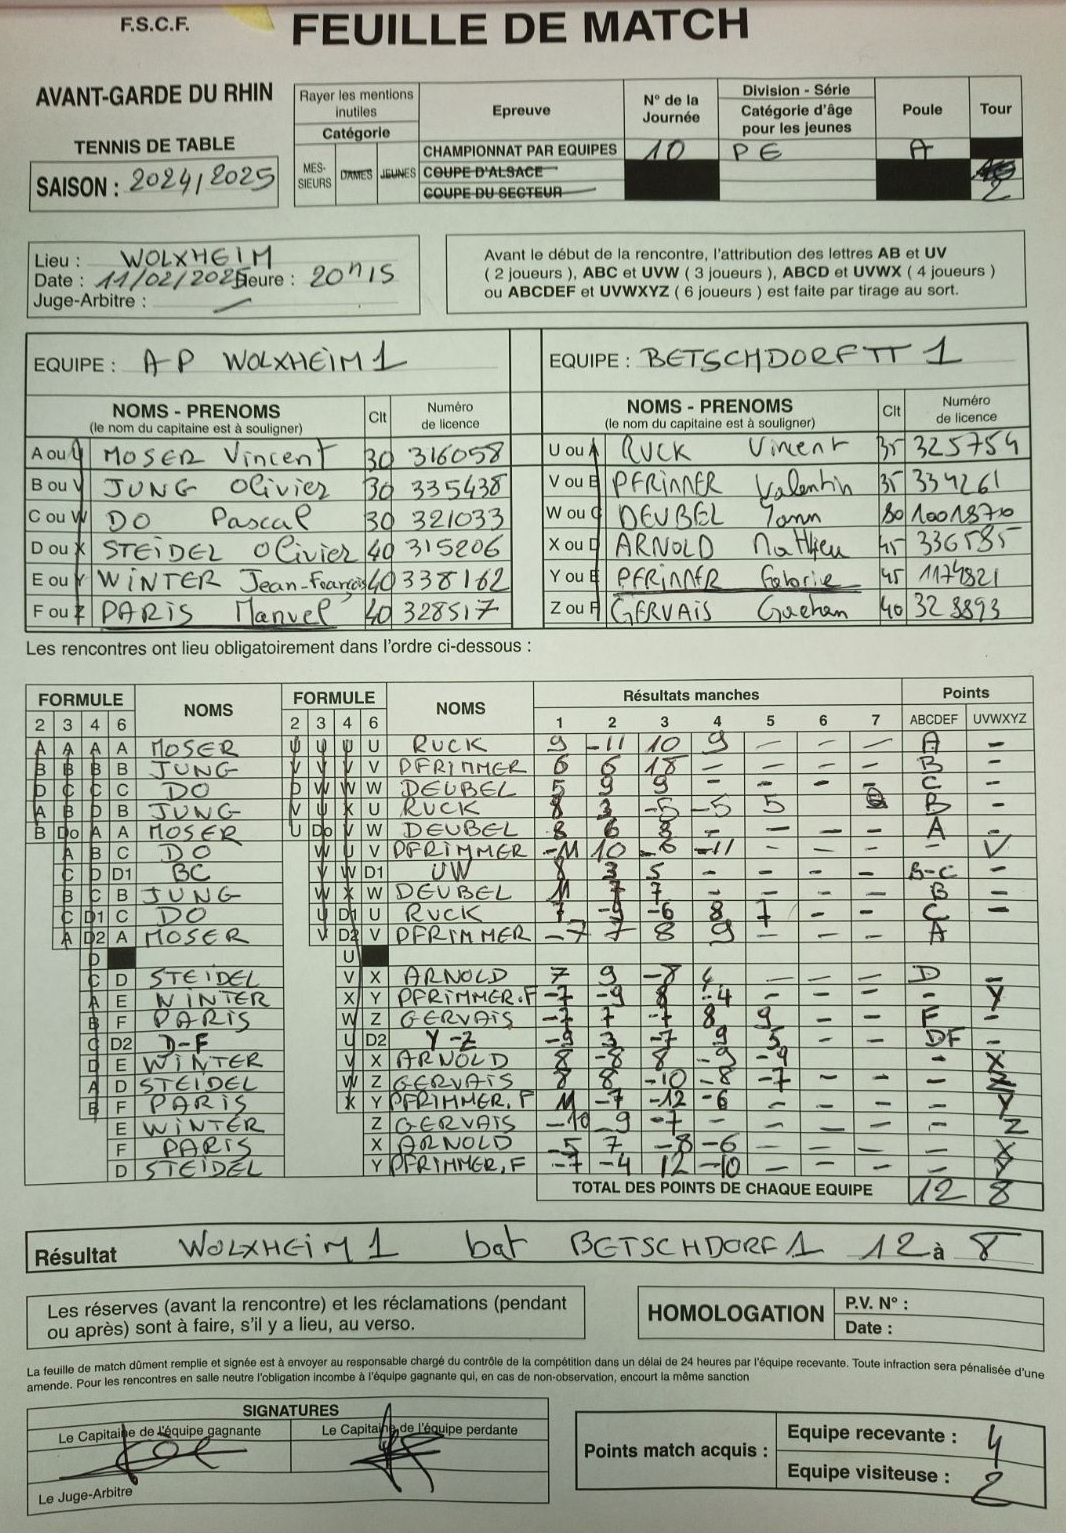 F.S.C.F.
FEUILLE DE MATCH
AVANT-GARDE DU RHIN
TENNIS DE TABLE
SAISON : 2024/2025
Rayer les mentions inutiles
Catégorie
MES-SIEURS DAMES JEUNES
Epreuve
CHAMPIONNAT PAR EQUIPES
COUPE D'ALSACE
COUPE DU SECTEUR
N° de la Journée
10
Division - Série
Catégorie d'âge pour les jeunes
PE
Poule
A
Tour
2
Lieu : WOLXHEIM
Date : 11/02/2025 Heure : 20h15
Juge-Arbitre : —
Avant le début de la rencontre, l'attribution des lettres AB et UV
( 2 joueurs ), ABC et UVW ( 3 joueurs ), ABCD et UVWX ( 4 joueurs )
ou ABCDEF et UVWXYZ ( 6 joueurs ) est faite par tirage au sort.
EQUIPE : AP WOLXHEIM 1
NOMS - PRENOMS Clt Numéro de licence
(le nom du capitaine est à souligner)
A ou U MOSER Vincent 30 316058
B ou V JUNG Olivier 30 335438
C ou W DO Pascal 30 321033
D ou X STEIDEL Olivier 40 315206
E ou Y WINTER Jean-François 40 338162
F ou Z PARIS Manuel 40 328517
EQUIPE : BETSCHDORF TT 1
NOMS - PRENOMS Clt Numéro de licence
(le nom du capitaine est à souligner)
U ou A RUCK Vincent 35 325754
V ou B PFRIMMER Valentin 35 334261
W ou C DEUBEL Yann
X ou D ARNOLD Matthieu 45 336585
Y ou E PFRIMMER 45 1174821
Z ou F GERVAIS Gaehan 40 328893
Les rencontres ont lieu obligatoirement dans l'ordre ci-dessous :
FORMULE NOMS FORMULE NOMS Résultats manches Points
2 3 4 6 2 3 4 6 1 2 3 4 5 6 7 ABCDEF UVWXYZ
A A A A MOSER U U U U RUCK 9 -11 10 9 — — — A —
B B B B JUNG V V V V PFRIMMER 6 6 18 — — — — B —
D C C C DO D W W W DEUBEL 5 9 9 — — — — C —
A B D B JUNG V U X U RUCK 8 3 -5 -5 5 B —
B Do A A MOSER U Do V W DEUBEL 8 6 8 — — — — A —
A B C DO W U V PFRIMMER -11 10 -6 -11 — — — — V
C D D1 BC V W D1 UW 8 3 5 — — — — B-C —
B C B JUNG W X W DEUBEL 11 7 7 — — — — B —
C D1 C DO U D1 U RUCK 7 -9 -6 8 7 — — C —
A D2 A MOSER V D2 V PFRIMMER -7 7 8 9 — — — A
D U
C D STEIDEL V X ARNOLD 7 9 -8 4 — — — D —
A E WINTER X Y PFRIMMER.F -7 -9 8 -4 — — — — Y
B F PARIS W Z GERVAIS -7 7 -7 8 9 — — F —
C D2 D-F U D2 Y-Z -9 3 -7 9 5 — — DF —
D E WINTER V X ARNOLD 8 -8 8 -9 -9 — X
A D STEIDEL W Z GERVAIS 8 8 -10 -8 -7 — — — Z
B F PARIS X Y PFRIMMER.F 11 -7 -12 -6 — — — — Y
E WINTER Z GERVAIS -10 -9 -7 — — — — — Z
F PARIS X ARNOLD -5 7 -8 -6 — — — — X
D STEIDEL Y PFRIMMER,F -7 -4 12 -10 — — — — Y
TOTAL DES POINTS DE CHAQUE EQUIPE 12 8
Résultat WOLXHEIM 1 bat BETSCHDORF 1 12 à 8
Les réserves (avant la rencontre) et les réclamations (pendant
ou après) sont à faire, s'il y a lieu, au verso.
HOMOLOGATION
P.V. N° :
Date :
La feuille de match dûment remplie et signée est à envoyer au responsable chargé du contrôle de la compétition dans un délai de 24 heures par l'équipe recevante. Toute infraction sera pénalisée d'une
amende. Pour les rencontres en salle neutre l'obligation incombe à l'équipe gagnante qui, en cas de non-observation, encourt la même sanction
SIGNATURES
Le Capitaine de l'équipe gagnante
Le Capitaine de l'équipe perdante
Le Juge-Arbitre
Points match acquis :
Equipe recevante : 4
Equipe visiteuse : 2